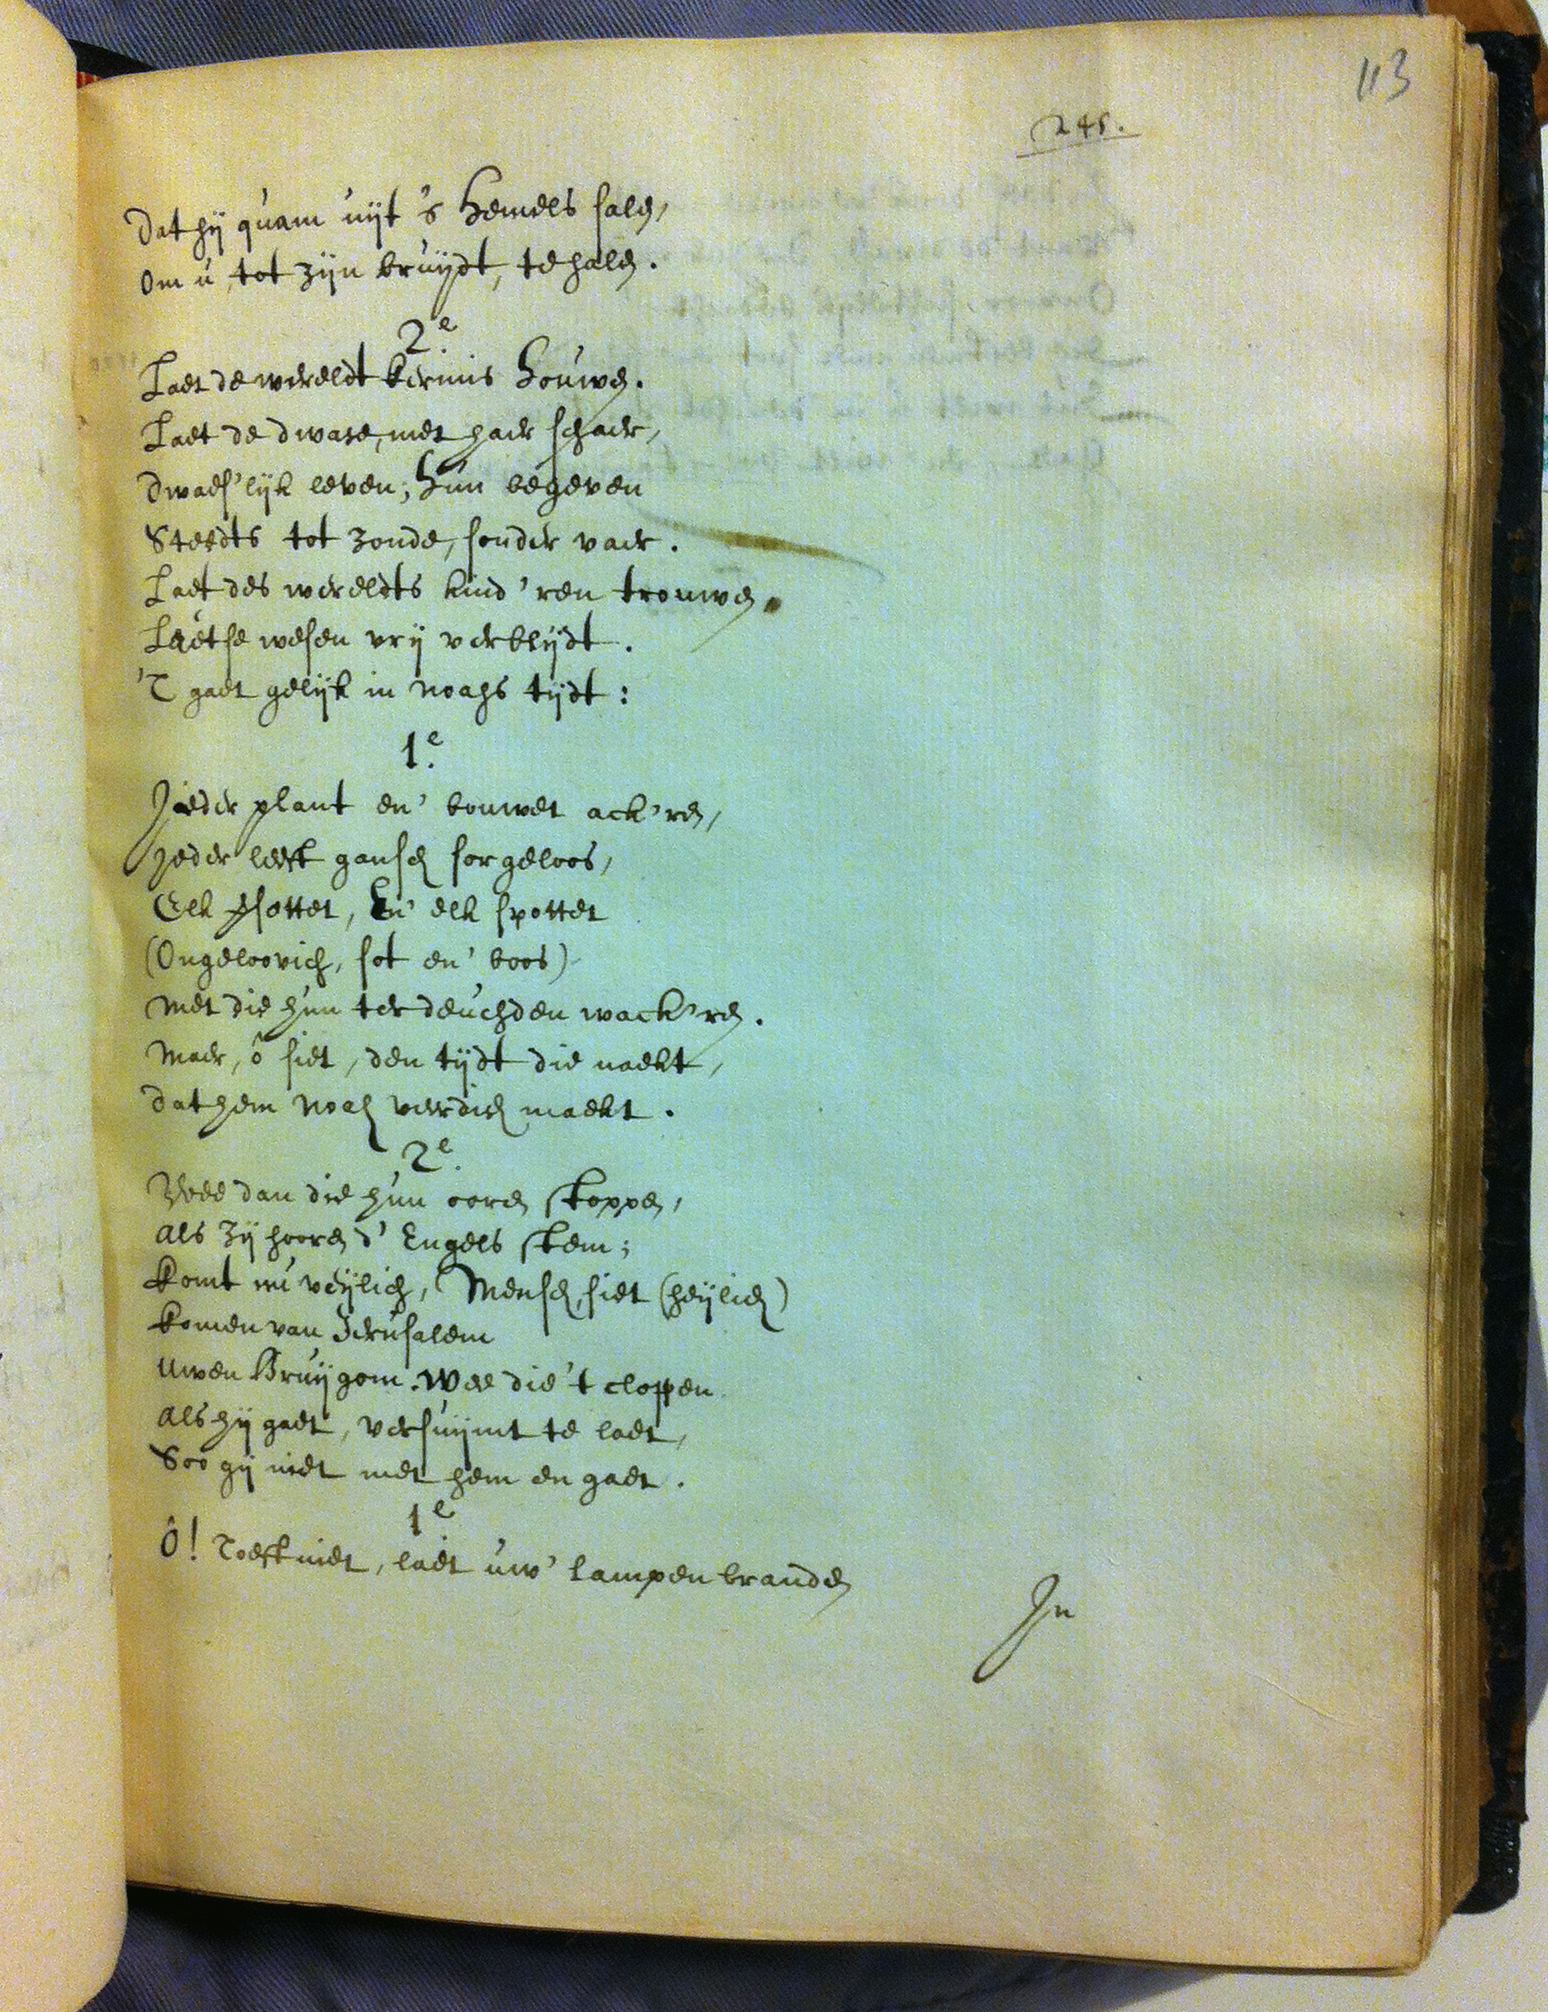 113
245.
Dat hÿ quam uÿt 's Hemels salen,
Om u, tot zÿn bruÿdt, te halen.
2e.
Laet de wereldt kermis houwen.
Laet de dwase, met haer schaer,
Dwaes'lÿk leven; hun begeven
Steedts tot zonde, sonder vaer.
Laet des wereldts kind'ren trouwen.
Laetse wesen vrÿ verblÿdt.
'T gaet gelÿk in Noahs tÿdt:
1e.
Jeder plant en' bouwet ack'ren,
Jeder leeft gansch sorgeloos,
Elk sottet, En' elk spottet
(Ongeloovich, sot en' boos)
Met die hun ter deuchden wack'ren.
Maer, ô siet, den tÿdt die naekt,
Dat hem Noah veerdich maekt.
2e.
Wee dan die hun ooren stoppen,
Als zÿ hooren d' Engels stem;
Komt nu veÿlich, Mensch, siet (heÿlich)
Komen van Jerusalem
Uwen Bruÿgom. Wee die 't cloppen
Als hÿ gaet, versuÿmt te laet,
Soo gÿ niet met hem en gaet.
1e
Ô! Toeft niet, laet uw' lampen branden
Jn